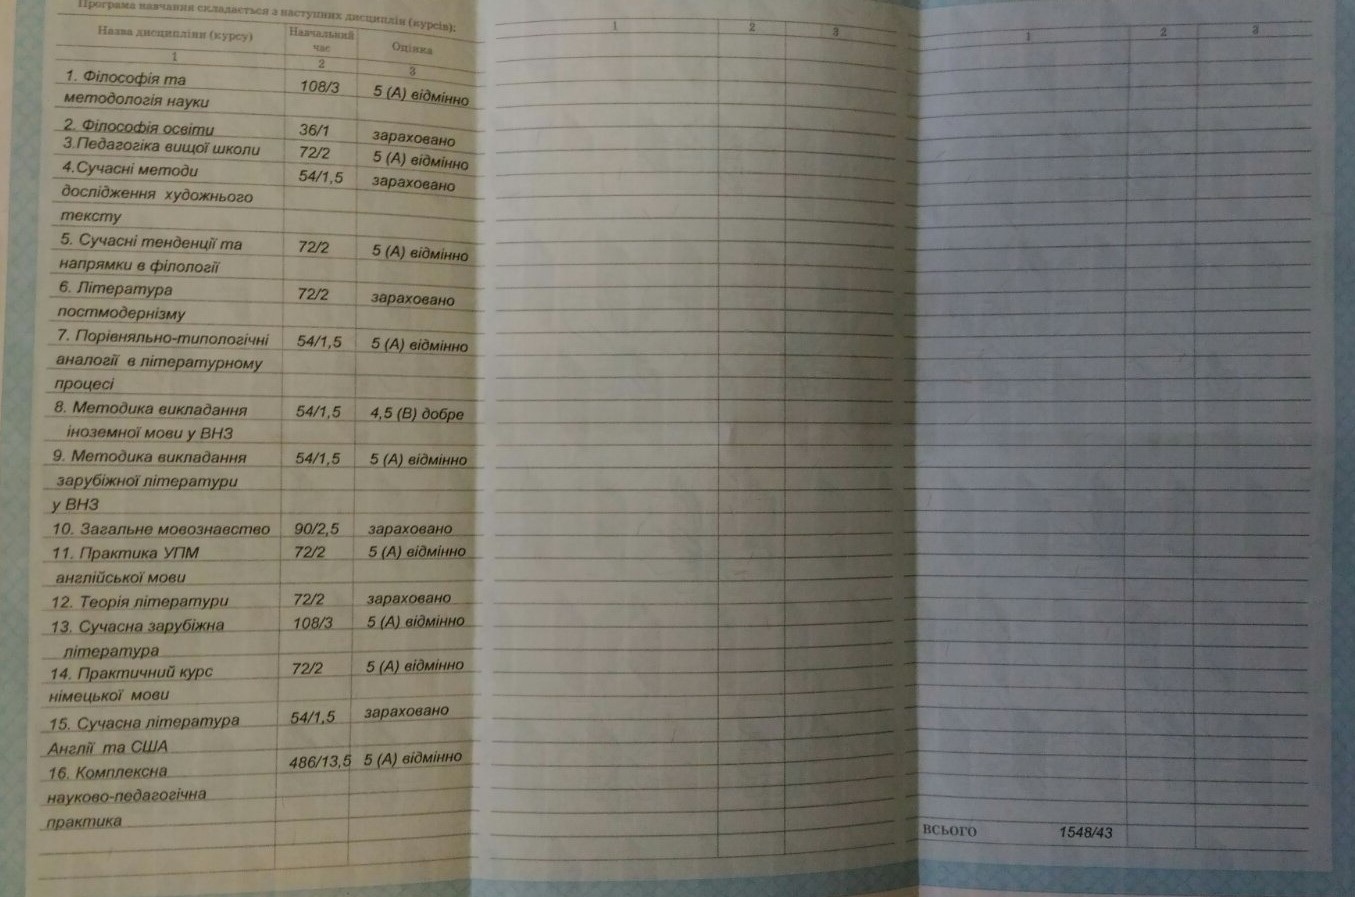 Програма навчання складається з наступних дисциплін (курсів):
Назва дисципліни (курсу) Навчальний час Оцінка
1 2 3
1. Філософія та 108/3 5 (А) відмінно
методологія науки
2. Філософія освіти 36/1 зараховано
3.Педагогіка вищої школи 72/2 5 (А) відмінно
4.Сучасні методи 54/1,5 зараховано
дослідження художнього
тексту
5. Сучасні тенденції та 72/2 5 (А) відмінно
напрямки в філології
6. Література 72/2 зараховано
постмодернізму
7. Порівняльно-типологічні 54/1,5 5 (А) відмінно
аналогії в літературному
процесі
8. Методика викладання 54/1,5 4,5 (В) добре
іноземної мови у ВНЗ
9. Методика викладання 54/1,5 5 (А) відмінно
зарубіжної літератури
у ВНЗ
10. Загальне мовознавство 90/2,5 зараховано
11. Практика УПМ 72/2 5 (А) відмінно
англійської мови
12. Теорія літератури 72/2 зараховано
13. Сучасна зарубіжна 108/3 5 (А) відмінно
література
14. Практичний курс 72/2 5 (А) відмінно
німецької мови
15. Сучасна література 54/1,5 зараховано
Англії та США
16. Комплексна 486/13,5 5 (А) відмінно
науково-педагогічна
практика
1 2 3
1 2 3
ВСЬОГО 1548/43